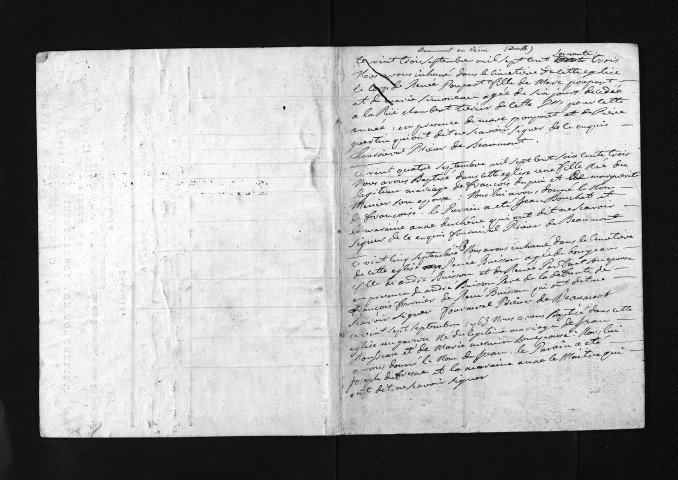 Beaumont en Veron (Double)
soixante
ce vint trois septembre mil sept cent trois
Nous avons inhumé dans le Cimetiere de cette eglise
le corps de Renée poupart fille de Marc poupart
et de Marie Simoneau agée de six jours decedée
a la Rue chambert de cette pour cette
année : en presence de marc poupart et de Pierre
qui ont dit ne savoir signer de ce enquis
Prieur de Beaumont.
ce vint quatre septembre mil sept cent soixante trois
Nous avons Baptisé dans cette eglise une fille née du
legitime mariage de francois dupuie et de
Menier son epouse : Nous lui avons donné le Nom
de francoise. le Parain a eté Jean Bouchet et
la maraine anne duchêne qui ont dit ne savoir
signer de ce enquis fournival Prieur de Beaumont
ce vint cinq septembre Nous avons inhumé dans le cimetiere
de cette eglise Renée Buisson agée de
fille de andré Buisson et de Renée son epouse
en presence de andré Buisson Pere de la defunte de
francois fournier de Pierre Buisson qui ont dit ne
savoir signer fournival Prieur de Beaumont
ce vint sept septembre 1763 Nous avons Baptisé dans cette
eglise un garcon né du legitime mariage de Jean
et de Marie menier son epouse : Nous lui
avons donné le Nom de Jean. le Parain a eté
Joseph dufresne et la maraine anne le Maitre qui
ont dit ne savoir signer